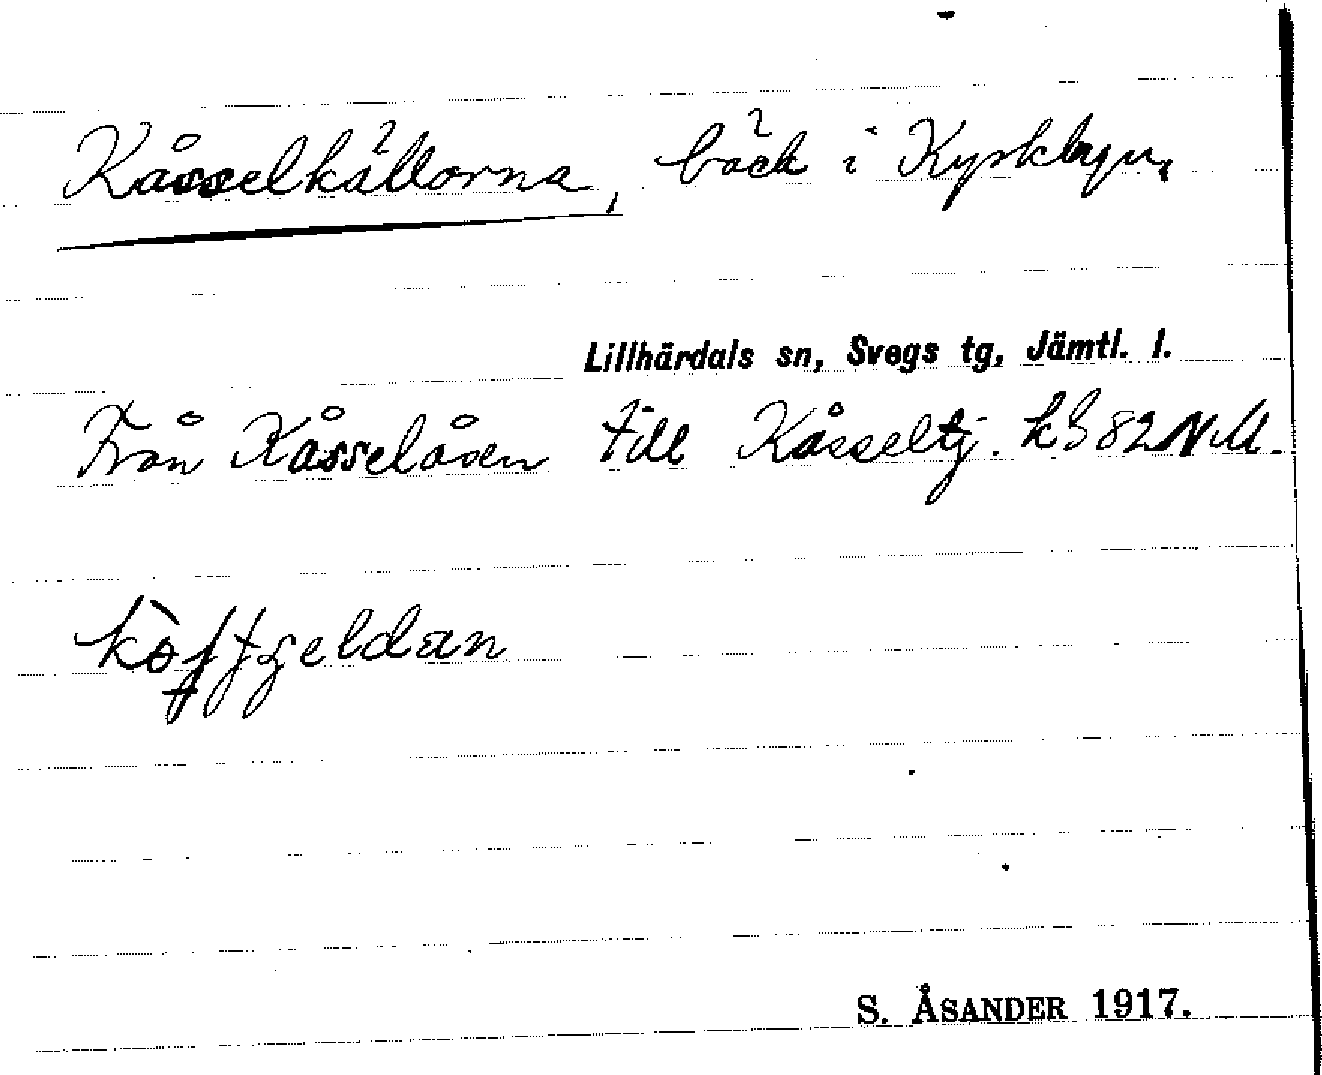 Kåsselkällorna, bäck i Kyrkbyn,
Lillhärdals sn, Svegs tg, Jämtl. l.
Från Kåsselåsen till Kåsseltj. 82 N.M.
S. ÅSANDER 1917.